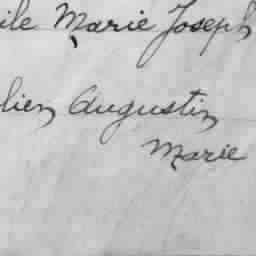 ile Marie Joseph
lien Augustin
Marie